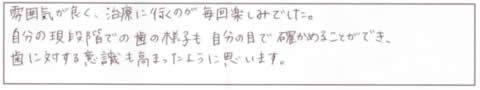 雰囲気が良く、治療に行くのが毎回楽しみでした。
自分の現段階での歯の様子も自分の目で確かめることができ、
歯に対する意識も高まったように思います。